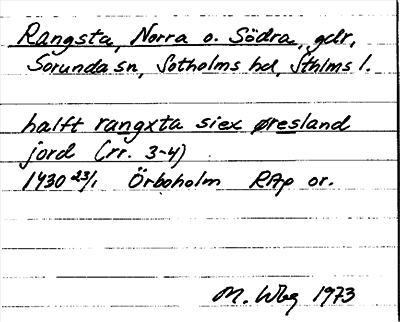 Rangsta, Norra o. Södra, gdr,
Sorunda sn, Sotholms hd, Sthlms l.
halft rangxta siex øresland
jord (rr. 3-4)
1430 23/1 Örboholm RAp or.
M. Wbg 1973